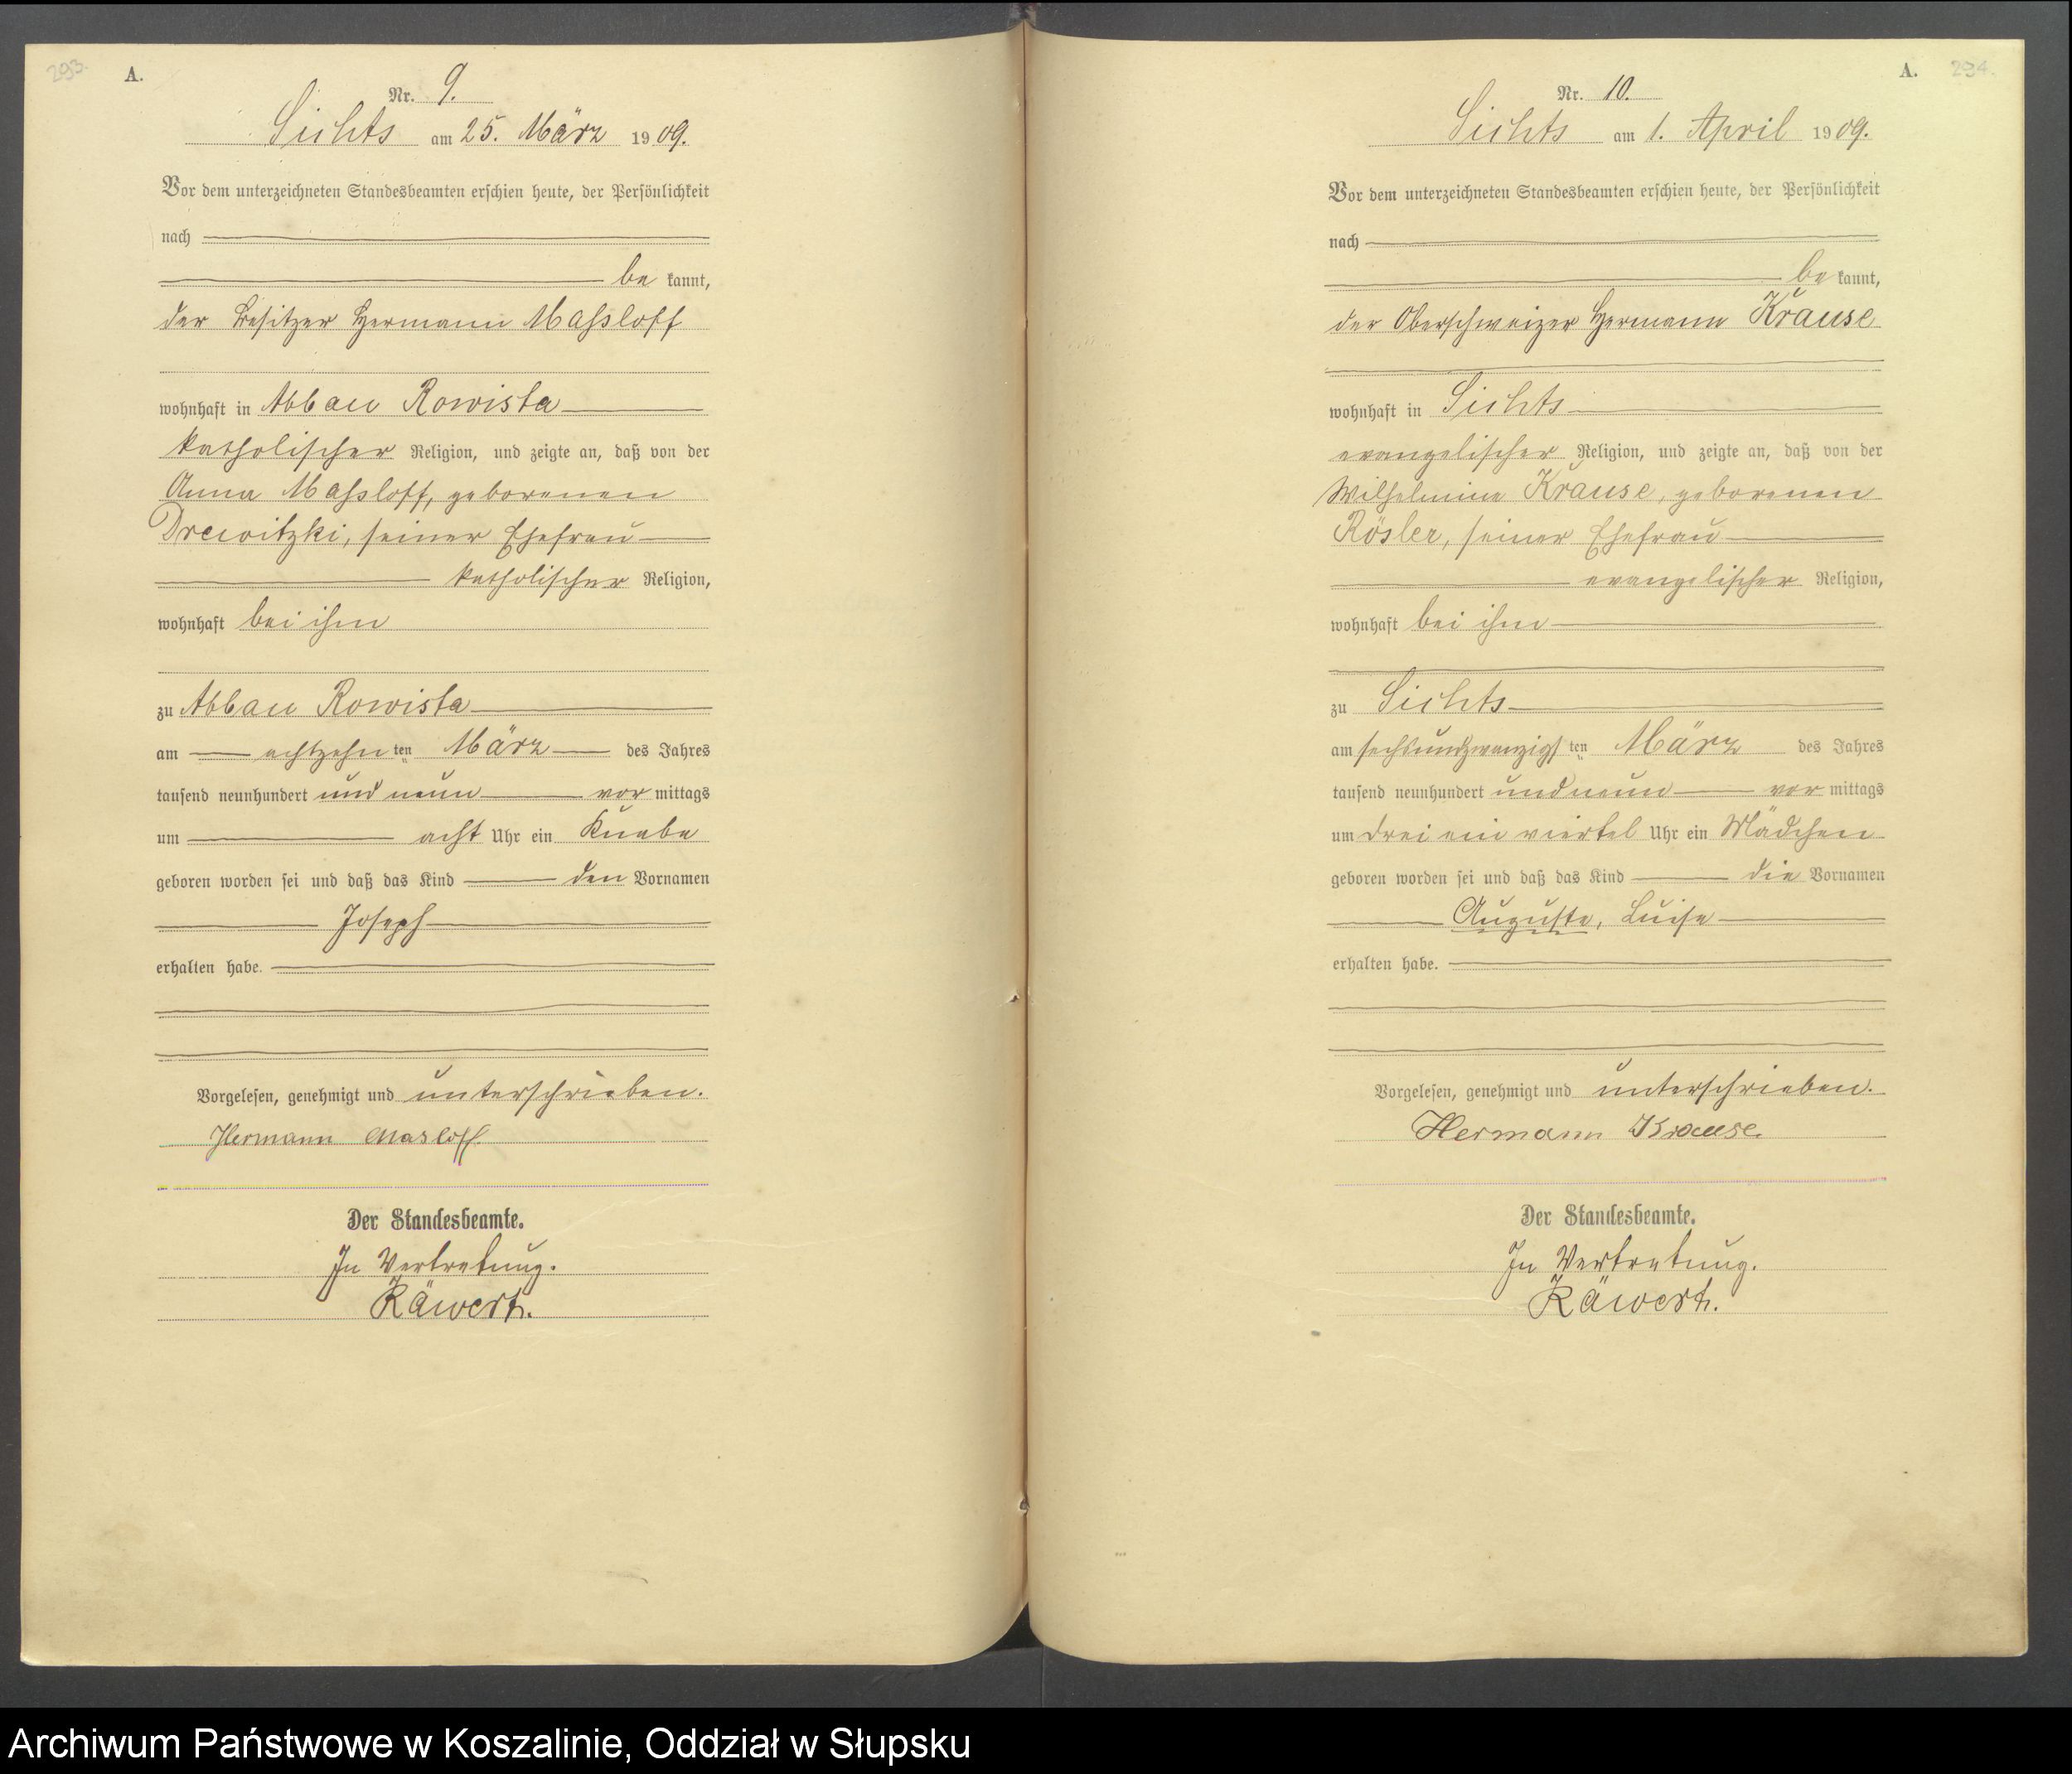 293.
A.
Nr. 9.
Sichts am 25. März 1909.
Vor dem unterzeichneten Standesbeamten erschien heute, der Persönlichkeit
nach
be kannt,
der Besitzer Hermann Maßloff
wohnhaft in Abbau Rowista
katholischer Religion, und zeigte an, daß von der
Anna Maßloff, geborenen
Drewitzki, seiner Ehefrau
katholischer Religion,
wohnhaft bei ihm
zu Abbau Rowista
am achtzehn ten März des Jahres
tausend neunhundert und neun vor mittags
um acht Uhr ein Knabe
geboren worden sei und daß das Kind den Vornamen
Joseph
erhalten habe.
Vorgelesen, genehmigt und unterschrieben.
Hermann Masloff
Der Standesbeamte.
In Vertretung.
Räwert.
A.
294.
Nr. 10.
Sichts am 1. April 1909.
Vor dem unterzeichneten Standesbeamten erschien heute, der Persönlichkeit
nach
be kannt,
der Oberschweizer Hermann Krause
wohnhaft in Sichts
evangelischer Religion, und zeigte an, daß von der
Wilhelmine Krause, geborenen
Rösler, seiner Ehefrau
evangelischer Religion,
wohnhaft bei ihm
zu Sichts
am sechsundzwanzigs ten März des Jahres
tausend neunhundert undneun vor mittags
um drei ein viertel Uhr ein Mädchen
geboren worden sei und daß das Kind die Vornamen
Auguste, Luise
erhalten habe.
Vorgelesen, genehmigt und unterschrieben.
Hermann Krause.
Der Standesbeamte.
In Vertretung.
Räwert.
Archiwum Państwowe w Koszalinie, Oddział w Słupsku